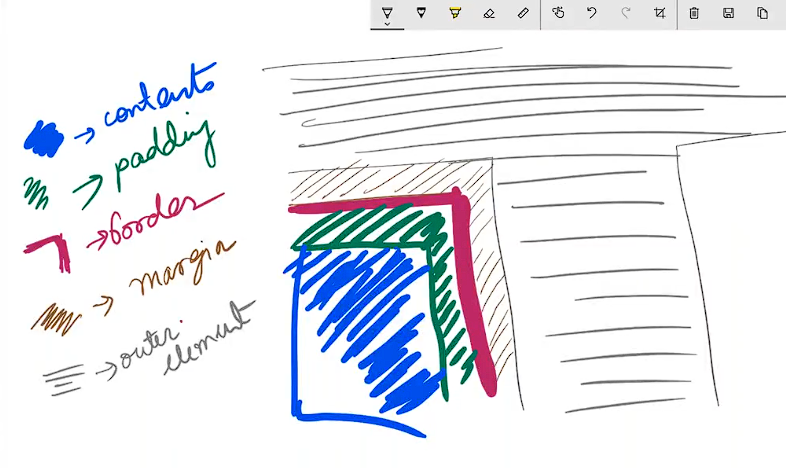 contents
padding
border
margin
outer
element